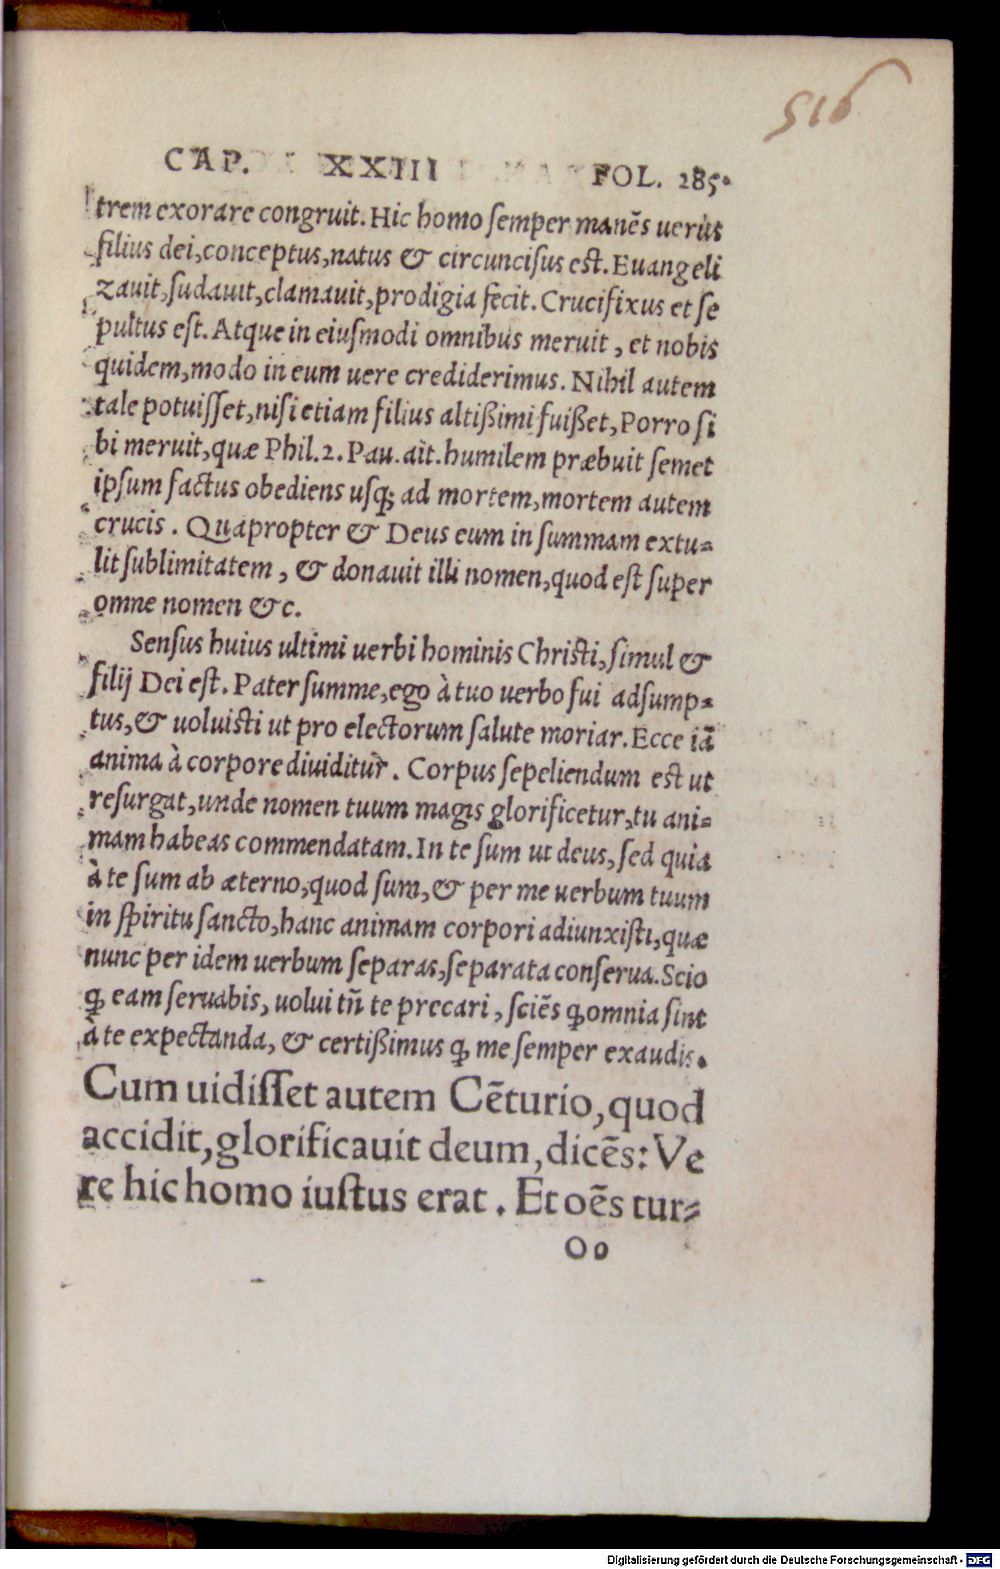 516
CAP. XXIII FOL. 285.
trem exorare congruit. Hic homo semper manẽs uerus
filius dei, conceptus, natus & circuncisus est. Euangeli
zauit, sudauit, clamauit, prodigia fecit. Crucifixus et se
pultus est. Atque in eiusmodi omnibus meruit, et nobis
quidem, modo in eum uere crediderimus. Nihil autem
tale potuisset, nisi etiam filius altißimi fuißet, Porro si
bi meruit, quæ Phil. 2. Pau. ait. humilem præbuit semet
ipsum factus obediens usq; ad mortem, mortem autem
crucis. Quapropter & Deus eum in summam extu-
lit sublimitatem, & donauit illi nomen, quod est super
omne nomen &c.
Sensus huius ultimi uerbi hominis Christi, simul &
filij Dei est. Pater summe, ego à tuo uerbo fui adsump-
tus, & uoluisti ut pro electorum salute moriar. Ecce iã
anima à corpore diuiditur. Corpus sepeliendum est ut
resurgat, unde nomen tuum magis glorificetur, tu ani-
mam habeas commendatam. In te sum ut deus, sed quia
à te sum ab æterno, quod sum, & per me uerbum tuum
in spiritu sancto, hanc animam corpori adiunxisti, quæ
nunc per idem uerbum separas, separata conserua. Scio
ꝙ eam seruabis, uolui tñ te precari, sciẽs ꝙ omnia sint
à te expectanda, & certißimus ꝙ me semper exaudis.
Cum uidisset autem Cẽturio, quod
accidit, glorificauit deum, dicẽs: Ve
re hic homo iustus erat. Et oẽs tur-
Oo
Digitalisierung gefördert durch die Deutsche Forschungsgemeinschaft - DFG